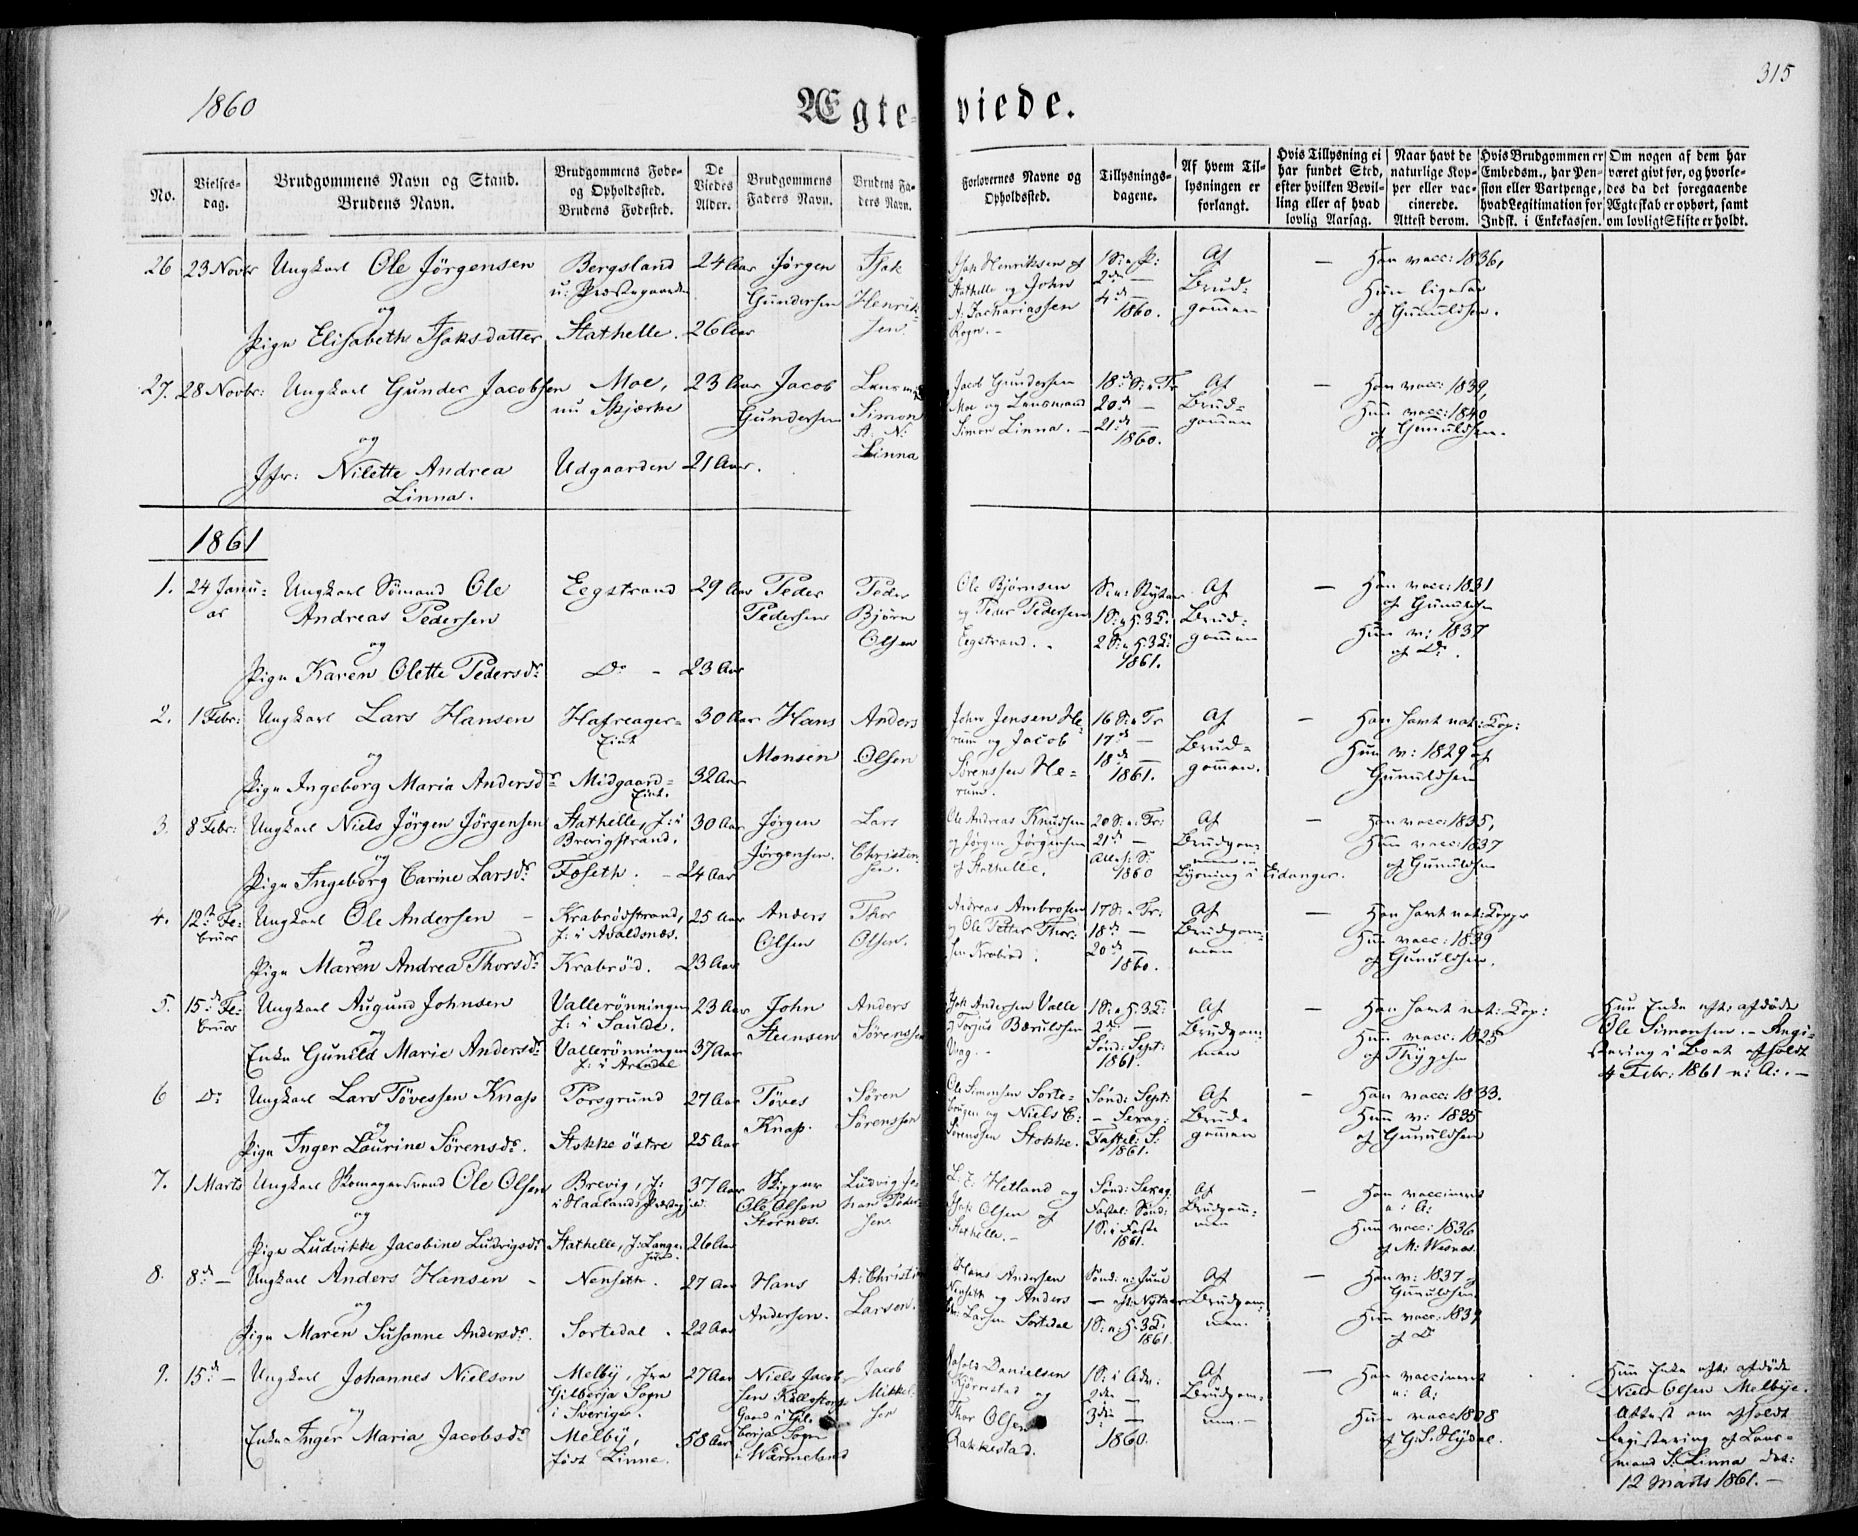 1860
Ægte-viede.
315
No.
Vielses-
dag.
Brudgommens Navn og Stand.
Brudens Navn.
Brudgommens Føde-
og Opholdssted.
Brudens Fødested.
De
Viedes
Alder.
Brudgommens
Faders Navn.
Brudens Fa-
ders Navn.
Forlovernes Navne og
Opholdssted.
Tillysnings-
dagene.
Af hvem Til-
lysningen er
forlangt.
Hvis Tillysning ei
har fundet Sted,
efter hvilken Bevil-
ling eller af hvad
lovlig Aarsag.
Naar havt de
naturlige Kop-
per eller vac-
cinerede.
Attest derom.
Hvis Brudgommen er
Embedsm., har Pen-
sion eller Vartpenge,
hvad Legitimation for
Indsk. i Enkekassen.
Om nogen af dem har
været givt før, og hvorle-
des da det foregaaende
Ægteskab er ophørt, samt
om lovligt Skifte er holdt.
26 23 Novbr Ungkarl Ole Jörgensen
og
Pige Elisabeth Isaksdatter
Bergsland
u: Præstegaarden
Stathelle.
24 Aar
26 Aar
Jörgen
Gundersen
Isak
Henrik-
sen.
Isak Henriksen af
Stathelle og John
A. Zachariassen
Rogn. -
1 S: a P:
2de —
4de —
1860.
Af
Brud-
gommen
—
Han vacc: 1836,
Hun ligesaa
af Gunuldsen.
27. 28 Novbr: Ungkarl Gunder Jacobsen
og
Jfr: Nilette Andrea
Linna.
Moe,
nu Skjerke
Udgaarden
23 Aar
21 Aar.
Jacob
Gundersen
Lensmd
Simon
A: N:
Linna
Jacob Gundersen
Moe og Lensmand
Simon Linna. -
18de S: a Tr
20de —
21de —
1860.
Af
Brud-
gommen
—
Han vacc: 1839,
Hun vacc: 1840
af Gunuldsen.
1861
1. 24 Janu-
ar
Ungkarl Sömand Ole
Andreas Pedersen
og
Pige Karen Olette Pedersdr
Eegstrand
Do -
29 Aar
23 Aar
Peder
Pedersen
Peder
Bjørn
Olsen
Ole Bjørnsen
og Peder Pedersen
Eegstrand. -
S: e: Nytaar
1 S: e H: 3 K:
2 S: e H: 3 K:
1861.
Af
Brud-
gommen
—
Han vacc: 1831
af Gunuldsen
Hun v: 1837
af Do.
2. 1 Febr: Ungkarl Lars Hansen
og
Pige Ingeborg Maria Andersdr
Hafreager-
Eiet
Midgaard-
Eiet.
30 Aar
32 Aar
Hans
Monsen
Anders
Olsen
John Jensen He-
rum og Jacob
Sörenssen He-
rum.
16 S: e Tr
17de —
18de —
1861.
Af
Brud-
gommen.
—
Han havt nat: Kop:
Hun v: 1829 af
Gunuldsen
3. 8 Febr: Ungkarl Niels Jörgen Jörgensen
og
Pige Ingeborg Carine Larsdr
Stathelle, f: i
Brevigstrand.
Foseth. -
30 Aar
24 Aar
Jörgen
Jörgensen.
Lars
Christen-
sen.
Ole Andreas Knudsen
og Jörgen Jörgensen
af Stathelle.
20 S: e: Tr:
21de —
Alleh: S:
1860
Af
Brudgom-
men —
Lysning i Eidanger.
—
Han vacc: 1835,
Hun vacc: 1837
af Gunuldsen
4. 12te Fe-
bruar
Ungkarl Ole Andersen -
og
Pige Maren Andrea Thorsdr
Krabrödstrand,
f: i Avaldsnes.
Krabröd.
25 Aar
23 Aar
Anders
Olsen
Thor
Olsen.
Andreas Ambrosen
og Ole Petter Thor-
sen Krabröd.
17 S: e Tr:
18de —
20de —
1860.
Af
Brudgom-
men
—
Han havt nat: Kopper
Hun vacc: 1839
af Gunuldsen.
5. 15de Fe-
bruar
Ungkarl Augund Johnsen
og
Enke Gunild Marie Andersdr
Vallerönningen
f: i Saude.
Vallerönningen
f: i Arendal
23 Aar
37 Aar
John
Steensen
Anders
Sörenssen
Isak Andersen Valle
og Torjus Bærulfsen
Vaag. -
1 S: e H: 3 K:
2de —
Sønd: Sept:
1861.
Af
Brudgom-
men
—
Han havt nat: Kop:
Hun vacc: 1825
af Thygesen
Hun Enke eft: afdöde
Ole Simonsen. - Regi-
strering i Boet afholdt
4 Febr: 1861 n: A:. —
6 Do Ungkarl Lars Tövessen Knap
og
Pige Inger Laurine Sörensdr.
Porsgrund
Stokke östre
27 Aar
25 Aar
Töves
Knap.
Sören
Sörenssen
Ole Simonsen Sorte-
brugen og Niels C:
Sörenssen Stokke.
Sønd: Sept:
— Sexag:
Fastel: S.
1861.
Af
Brud-
gommen
—
Han vacc: 1833.
Hun v: 1835
af Gunuldsen
7. 1 Marts Ungkarl Skomagersvend Ole Olsen
og
Pige Ludvikke Jacobine Ludvigsdr
Brevig, f:
i Haalands Præstegjeld
Stathelle, f: Lange-
sund.
37 Aar
26 Aar
Skipper
Ole Olsen
Stornæs.
Ludvig Jo-
han Peder-
sen.
L. E. Hetland og
Isak Olsen af
Stathelle. -
Sønd: Sexag.
Fastel: Sønd:
1 S: i Faste
1861.
Af
Brudgom-
men
—
Han vaccineret
n: A:
Hun vacc: 1836
af M: Wesnes.
8. 8de — Ungkarl Anders Hansen -
og
Pige Maren Susanne Andersdr.
Nenseth.
Sortedal.
27 Aar
22 Aar
Hans
Andersen.
A: Christi
Larsen.
Hans Andersen
Nenseth og Anders
Chr: Larsen Sortedal
Sønd: e: Juul
— eft: Nytaar
1 S: e: H: 3 K:
1861.
Af
Brudgom-
men.
—
Han v: 1837 af
Gunuldsen
Hun vacc: 1839
af Do
9. 15de — Ungkarl Johannes Nielson
og
Enke Inger Maria Jacobsdr
Melby, fra
Gilberja Sogn
i Sverige.
Melby,
född Linne.
27 Aar
58 Aar
Niels Jacob-
sen Källostorp
Gaard i Gil-
berja Sogn
i Wærmeland
Jacob
Mikkel-
sen
Danielsen
Kjörrestad og
Thor Olsen
Rakkestad.
1 S: i Adv:
2den —
3die —
1860.
Af
Brudgom-
men. —
—
Han vaccineret
n: A:
Hun vacc 1808
af G: S. Hydal.
Hun Enke eft: afdöde
Niels Olsen Melbye.
Attest om afholdt
Registrering af Lens-
mand S. Linna dat:
12 Marts 1861. —